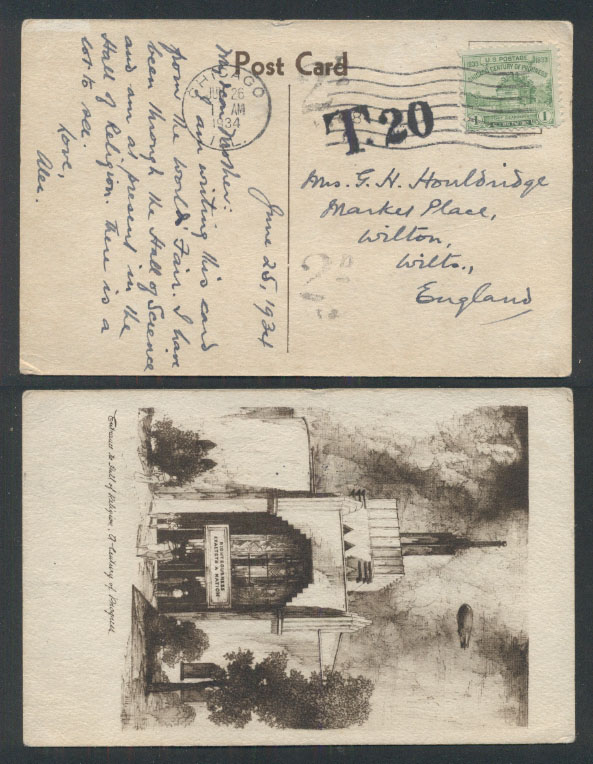 Post Card
CHICAGO
JUN 26
AM
1934
T. 20
U.S. POSTAGE
1833 1933
CENTURY OF PROGRESS
1 1
My own Mother:
I am writing this card
from the World's Fair. I have
been through the Hall of Science
and am at present in the
Hall of Religion. There is a
lot to see.
Love,
Alec.
June 25, 1934
Mrs. G. H. Houldridge
Market Place,
Wilton,
Wilts.,
England
Entrance to Hall of Religion, A Century of Progress
RIGHTEOUSNESS
EXALTETH A NATION